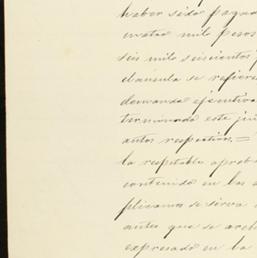 haber sido pagad
enta mil pesos
seis mil seiscientos
clausula se refiere
demanda ejecutiva
terminado este jui
autos respectivos. =
la respetable aprob
contenido en los
plicamos se sirva
antes que se arch
expresado en la